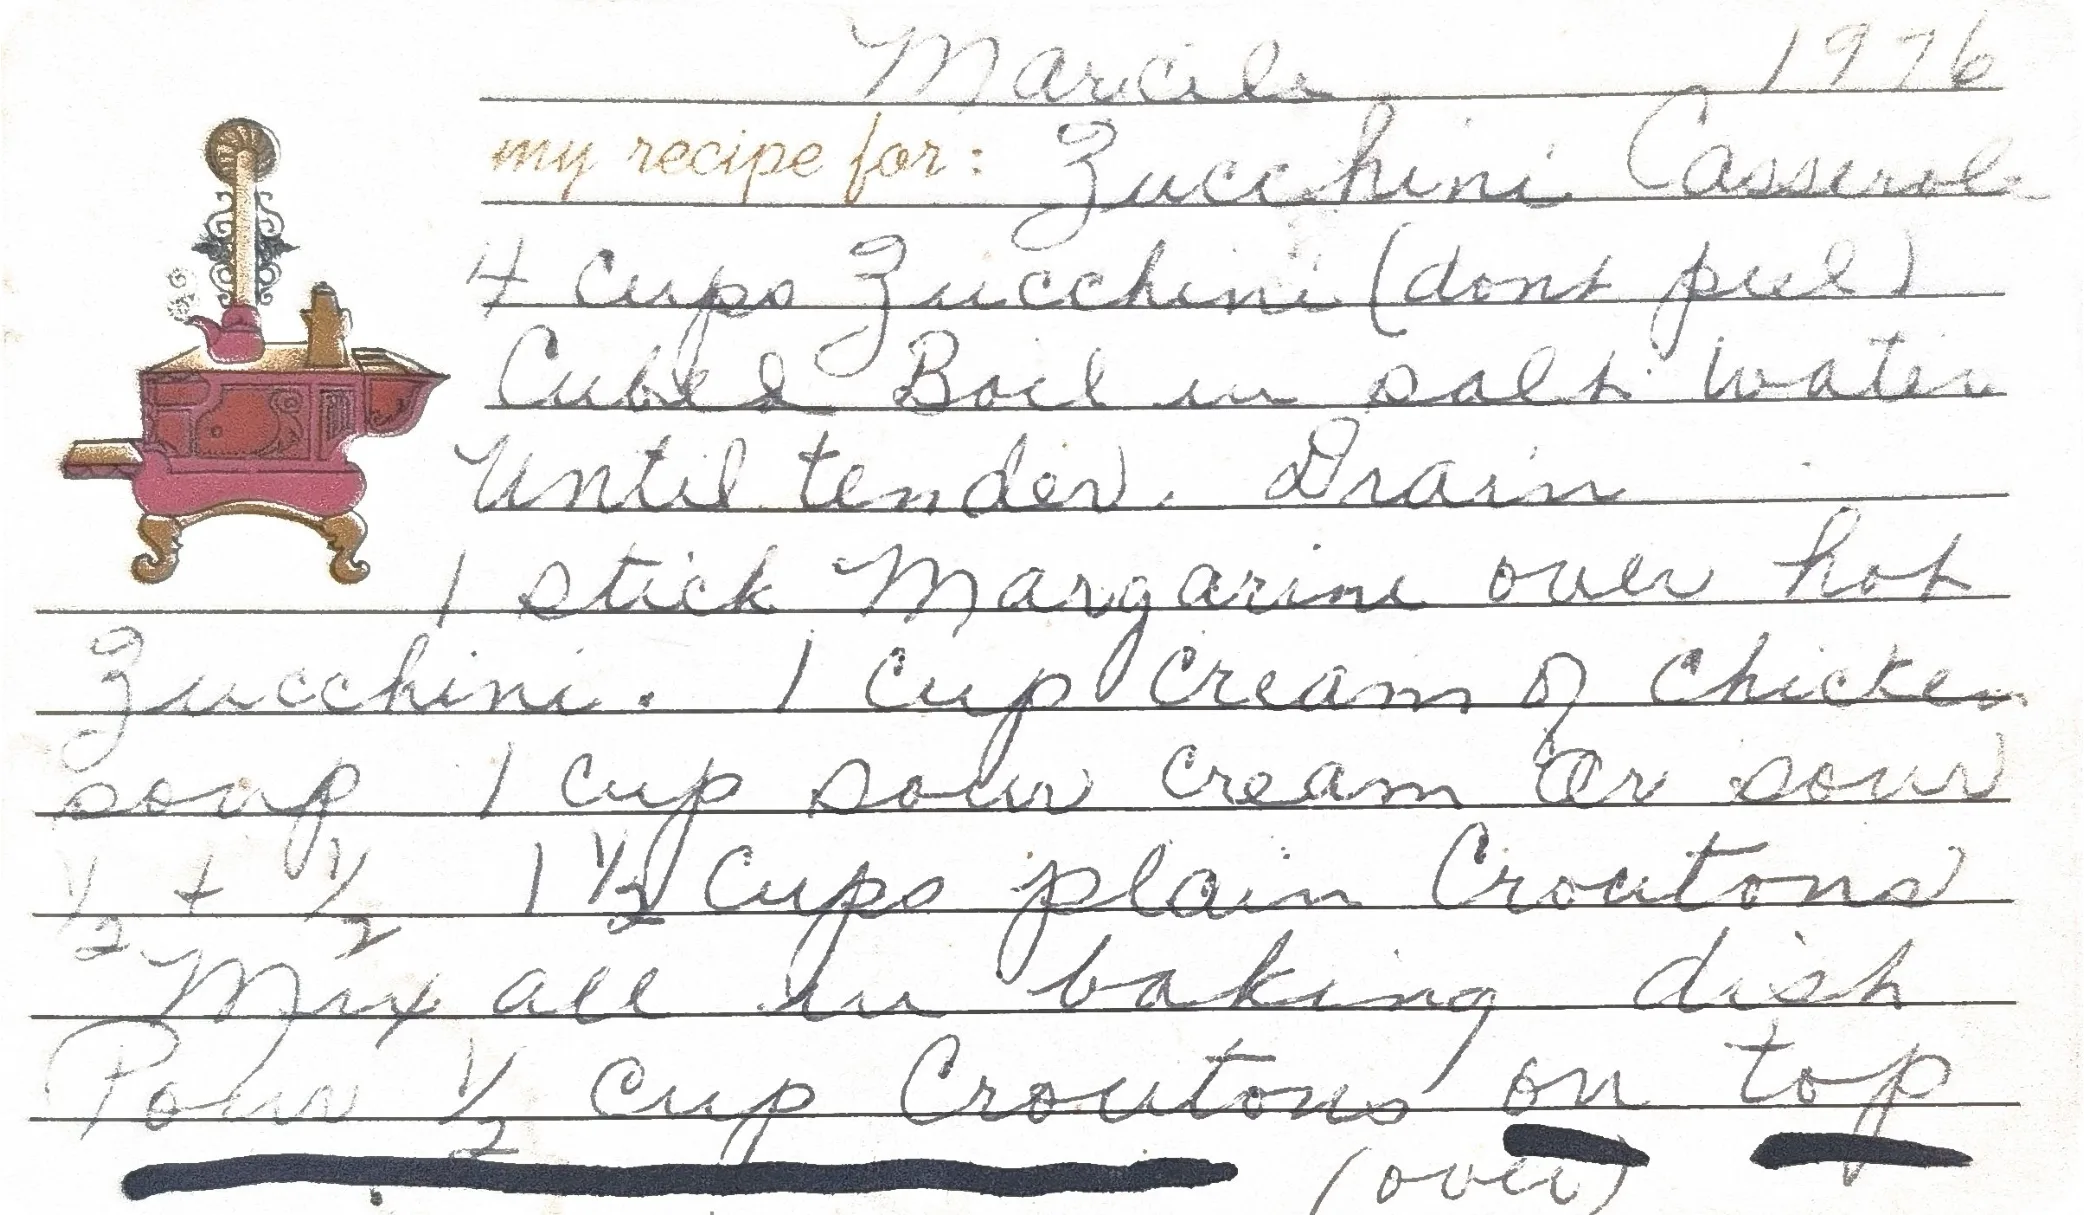 Marcile 1976
my recipe for: Zucchini Casserole
4 cups Zucchini (dont peel)
Cubed Boil in salt water
Until tender. Drain
1 stick Margarine over hot
Zucchini. 1 cup cream of chicken
soup 1 cup sour cream Or sour
1/2 + 1/2 1 1/2 cups plain Croutons
Mix all in baking dish
Pour 1/2 cup Croutons on top
(over)